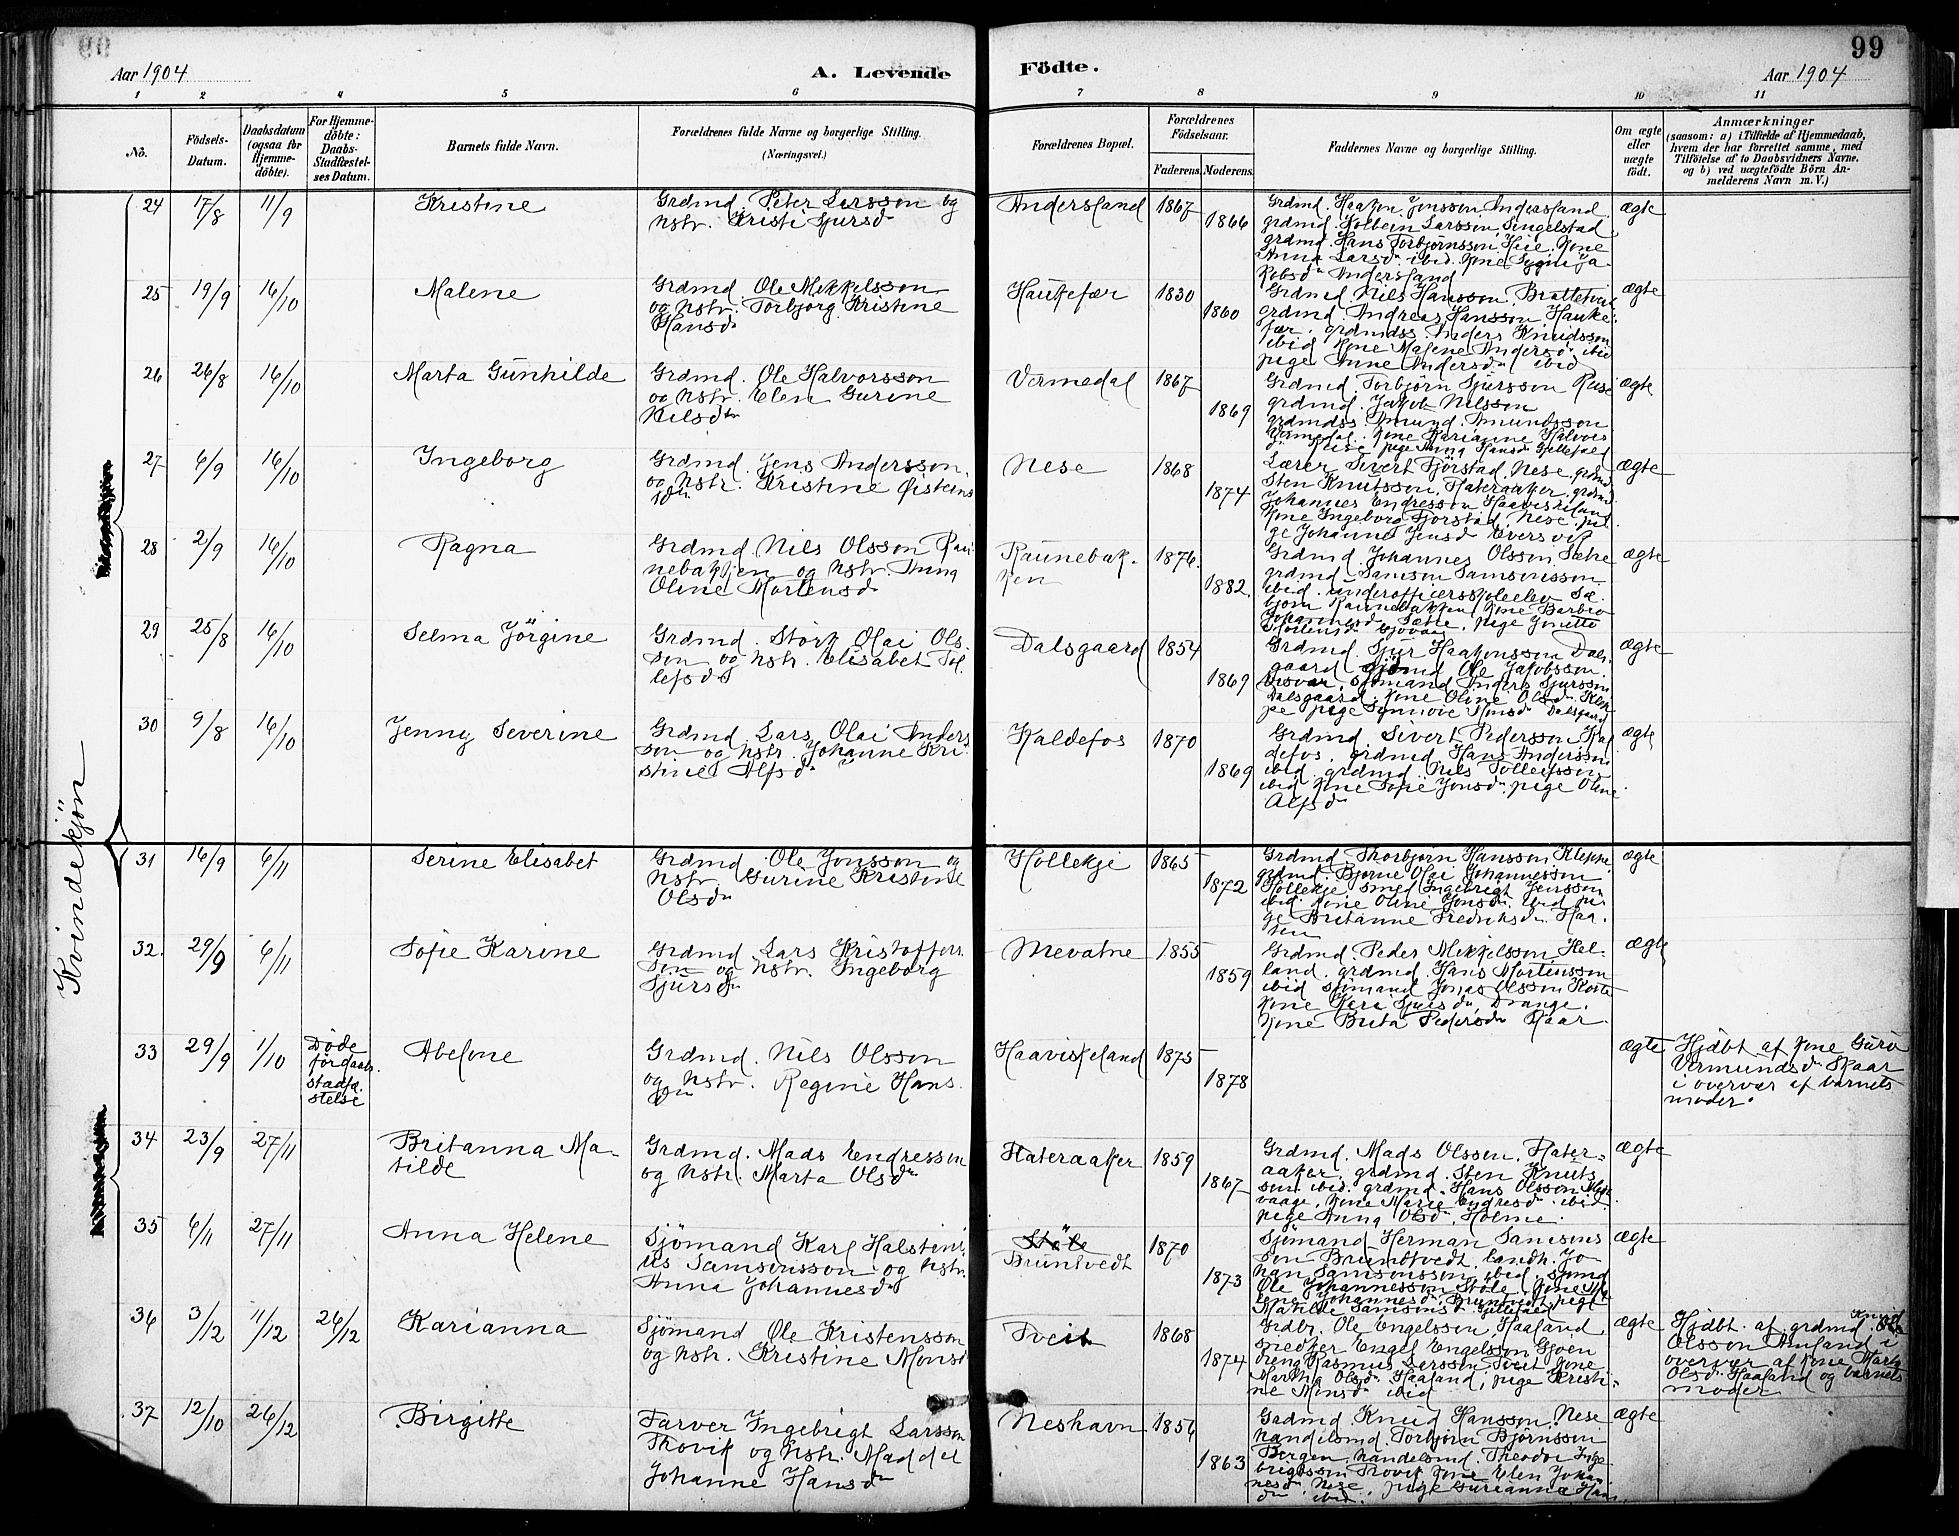 99
Aar 1904
A. Levende Födte.
Aar 1904
1 2 3 4 5 6 7 8 9 10 11
No.
Födsels-Datum.
Daabsdatum (ogsaa for Hjemme-döbte).
For Hjemme-döbte: Daabs-Stadfæstel-ses Datum.
Barnets fulde Navn.
Forældrenes fulde Navne og borgerlige Stilling.
(Næringsvei.)
Forældrenes Bopæl.
Forældrenes Födselsaar.
Faderens. Moderens.
Faddernes Navne og borgerlige Stilling.
Om ægte eller uægte födt.
Anmærkninger
(saasom: a) i Tilfælde af Hjemmedaab,
hvem der har forrettet samme, med
Tilföielse af to Daabsvidners Navne,
og b) ved uægtefödte Börn An-
melderens Navn m.V.)
Kvindekjøn
24 17/8 11/9 Kristine
Grdmd. Peter Larsson og
hstr. Kristi Sjursdn
Andersland 1867 1866
Grdmd. Haakon Jonsson Andersland
grdmd. Kolbein Larsson Singelstad
grdmd Hans Torbjørnsson Heie. Kone
Anna Larsdn ibid. Kone Synni Ja-
kobsdn Andersland
ægte
25 19/9 16/10 Malene
Grdmd. Ole Mikkelsson
og hstr. Torbjørg Kristine
Hansdn
Haukefær 1830 1860
Grdmd Nils Hansson, Brattetveit
grdmd Andreas Hansson, Hauke-
fær. grdmdss Anders Knudsson
ibid Kone Malene Andersdn ibid
pige Anne Andersdn ibid
ægte
26 26/8 16/10 Marta Gunhilde
Grdmd. Ole Halvorsson
og hstr. Elen Gurine
Nilsdtr
Vermedal 1867 1869
Grdmd Torbjørn Sjursson Ruse
grdmd. Jakob Nilsson
grdmdss Amund Amundsson
Vermedal. Kone Karianne Halvors
dn Ruse, pige Anna Hansdn Gjellefald
ægte
27 6/9 16/10 Ingeborg
Grdmd. Jens Andersson
og hstr. Kristine Øisteins
dtn
Nese 1868 1874
Lærer Sivert Fjørstad, Nese, grdmd
Sten Knutsson, Hateraaker, grdmd
Johannes Endresson Haaviskeland
Kone Ingeborg Fjørstad, Nese, pi-
ge Johanne Jensdn Eversvik
ægte
28 2/9 16/10 Ragna
Grdmd. Nils Olsson Rau-
nebakken og hstr. Anna
Oline Mortensdn
Raunebak-
ken 1876 1882
Grdmd Johannes Olsson Sætre
grdmd Samson Samsonsson
ibid. underofficersskoleelev Sæ-
bjørn Raunebakken, Kone Barbro
Johannesdn Sætre, pige Jonette
Mortensdn
ægte
29 25/8 16/10 Selma Jörgine
Grdmd. Størk Olai Ols-
son og hstr. Elisabet Tol-
lefsdn
Dalsgaard 1854 1869
Grdmd Sjur Haakonsson Dals-
gaard. Ole Jakobsson
sjømand Anders Sjursson
Dalsgaard, Kone Oline Olsdn Klep-
pe pige Synnøve Monsdn Dalsgaard
ægte
30 9/8 16/10 Jenny Severine
Grdmd. Lars Olai Anders
son og hstr. Johanne Kri-
stine Alfsdn
Kaldefos 1870 1869
Grdmd Sivert Pedersson Kal
defos, grdmd Hans Andersson
ibid. grdmd. Nils Tollefsson
ibid Kone Sofie Jonsdn, pige Oline
Alfsdn
ægte
31 16/9 6/11 Serine Elisabet
Grdmd. Ole Jonsson og
hstr. Gurine Kristine
Olsdn
Hollekje 1865 1872
Grdmd Thorbjørn Hansson, Kleppe
grdmd. Bjorne Olai Johannesson
Hollekje, smed Ingebrigt Jensson
ibid. Kone Oline Jonsdn. ibid pi-
ge Britanne Fredriksdn Haa-
ten
ægte
32. 29/9 6/11 Sofie Karine
Grdmd. Lars Kristoffers
son og hstr. Ingeborg
Sjursdn
Mevatne 1855 1859
Grdmd. Peder Mikkelsson Hel-
land. grdmd. Hans Mortensson
ibid sjømand Jonas Olsson
Kone Kari Sjursdn Drange.
Kone Brita Pedersdn Skaar
ægte
33 29/9 1/10
Døde
før daabs
stadfæ-
stelse
Abelone
Grdmd. Nils Olsson
og hstr. Regine Hans
dn
Haaviskeland 1875 1878
ægte
Hjdbt af Kone Guro
Vermundsdn Skaar
i overvær af barnets
moder.
34 23/9 27/11 Britanna Ma-
tilde
Grdmd. Mads Endresson
og hstr. Marta Olsdn
Hateraaker 1859 1867
Grdmd. Mads Olsson. Hater-
aaker, grdmd. Sten Knuts
son ibid. grdmd. Hans Olsson
vaage, Kone Marie Endresdn ibid.
pige Anna Olsdn, Holme.
ægte
35 6/11 27/11 Anna Helene
Sjömand Karl Halstini-
us Samsonsson og hstr.
Anna Johannesdn
Støle
Bruntvedt 1870 1873
Sjømand Herman Samsons
son Bruntvedt. landh. Jo-
han Samsonsson ibid. sjømd
Ole Johannesson Støle, Kone
lena Johannesdn Bruntvedt, pige
Matilde Samsonsdn
ægte
36 3/12 11/12 26/12 Karianna
Sjömand Ole Kristensson
og hstr. Kristine Monsdn
Tveit 1868 1874
Grdbr. Ole Engelsson, Haaland,
snedker Engel Engelsson Gjøen
dreng Rasmus Larsson Tveit Kone
Martha Olsdn Haaland, pige Kristi-
ne Monsdn ibid
ægte
Hjdbt. af grdmd. Knud
Olsson Amland i
overvær af Kone Marta
Olsdn Haaland og barnets
moder
37 12/10 26/12 Birgitte
Farver Ingebrigt Larsson
Thovik og hstr. Maddel
Johanne Hansdn
Neshavn 1856 1863
Grdmd Knud Hansson, Nese
handelsmd. Torbjørn Björnsson
Bergen, handelsmd. Theodor Inge-
brigtsson Thovik Kone Elen Johan-
nesdn Nese, pige Gurianna Hans
dn ibid.
ægte